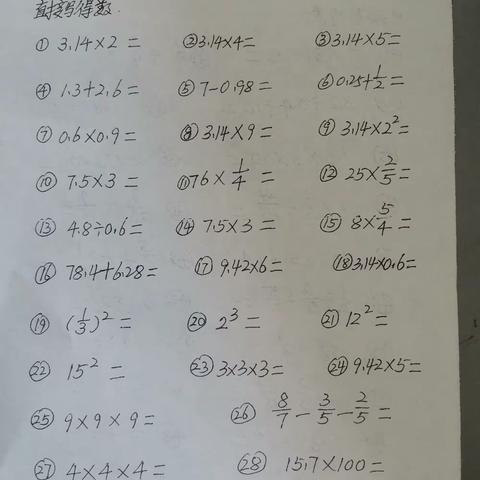 直接写得数.
① 3.14×2 = ② 3.14×4= ③ 3.14×5=
④ 1.3+2.6= ⑤ 7-0.98= ⑥ 0.25+1/2=
⑦ 0.6×0.9= ⑧ 3.14×9= ⑨ 3.14×2²=
⑩ 7.5×3= ⑪ 76×1/4= ⑫ 25×2/5=
⑬ 4.8÷0.6= ⑭ 7.5×3= ⑮ 8×5/4=
⑯ 78.4+6.28= ⑰ 9.42×6= ⑱ 3.14×0.6=
⑲ (1/3)²= ⑳ 2³= ㉑ 12²=
㉒ 15²= ㉓ 3×3×3= ㉔ 9.42×5=
㉕ 9×9×9= ㉖ 8/7-3/5-2/5=
㉗ 4×4×4= ㉘ 15.7×100=